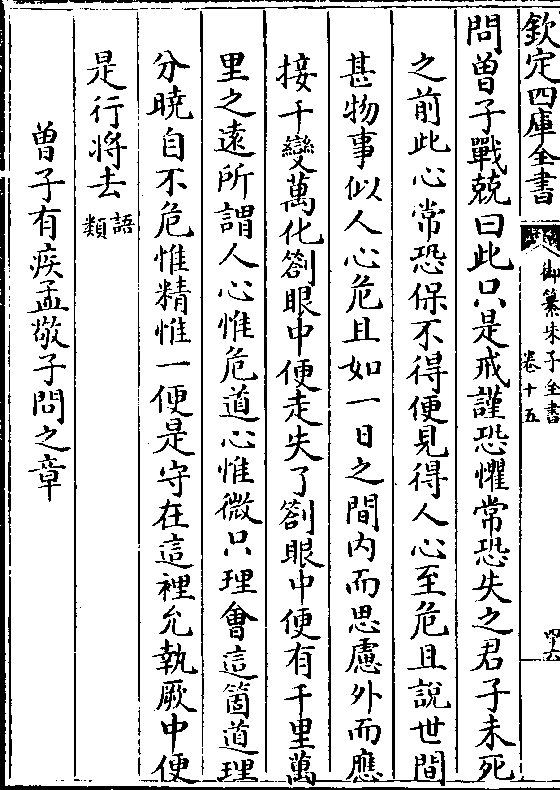 欽定四庫全書
御纂朱子全書
卷十五
四六
問曽子戰兢曰此只是戒謹恐懼常恐失之君子未死
之前此心常恐保不得便見得人心至危且說世間
甚物事似人心危且如一日之間内而思慮外而應
接千變萬化劄眼中便走失了劄眼中便有千里萬
里之遠所謂人心惟危道心惟微只理會這箇道理
分曉自不危惟精惟一便是守在這裡允執厥中便
是行將去語類
曽子有疾孟敬子問之章